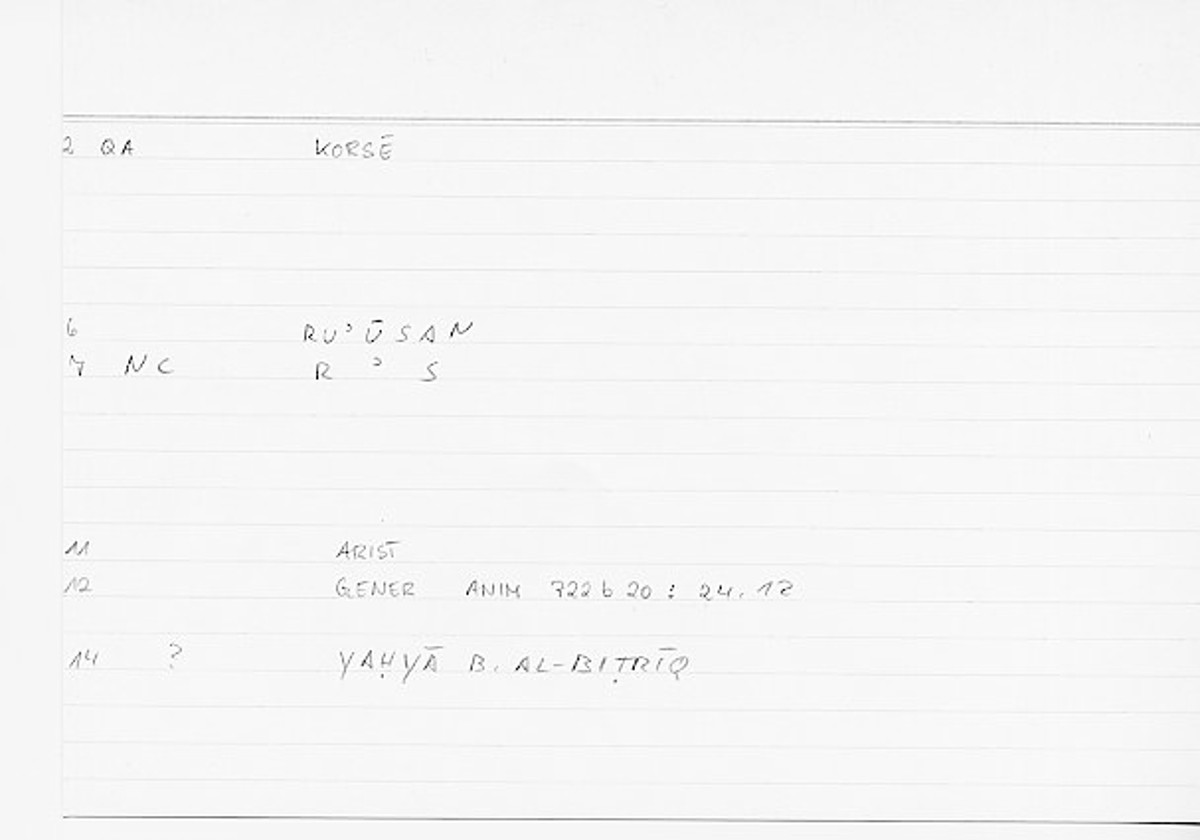 2 QA KORSĒ
6 RUʾŪSAN
7 NC R ʾ S
11 ARIST
12 GENER ANIM 722 b 20 : 24.12
14 ? YAḤYĀ B. AL-BIṬRĪQ